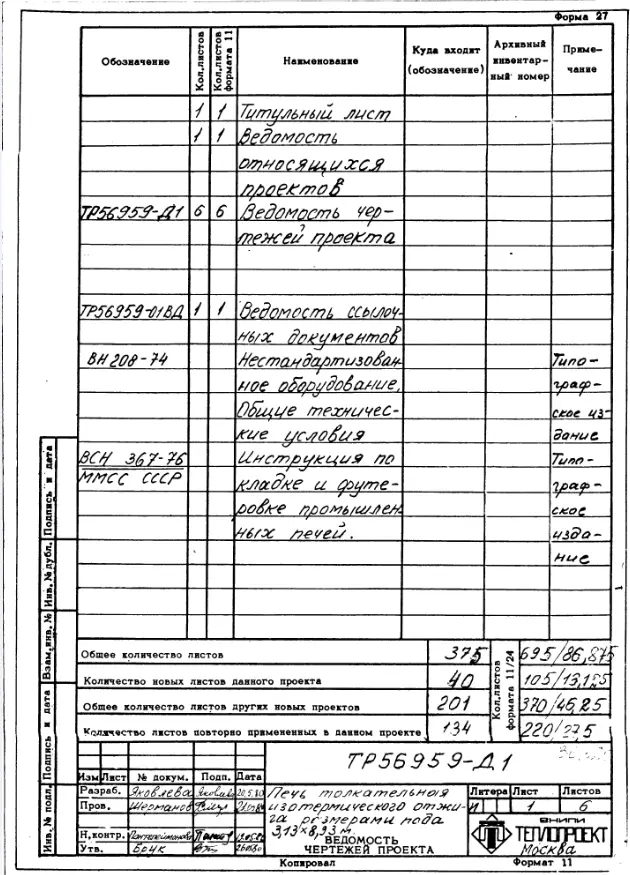 Форма 27
Обозначение Кол.листов Кол.листов формата 11 Наименование Куда входит (обозначение) Архивный инвентарный номер Примечание
1 1 Титульный лист
1 1 Ведомость
относящихся
проектов
ТР56959-Д1 6 6 Ведомость чер-
тежей проекта
ТР56959-01ВД 1 1 Ведомость ссылоч-
ных документов
ВН208-74 Нестандартизован- Типо-
ное оборудование. граф-
Общие техничес- ское из-
кие условия дание
ВСН 367-76 Инструкция по Типо-
ММСС СССР кладке и футе- граф-
ровке промышлен- ское
ных печей. изда-
ние
Общее количество листов 375 695/86,875
Количество новых листов данного проекта 40 105/13,125
Общее количество листов других новых проектов 201 370/46,25
Количество листов повторно примененных в данном проекте 134 220/27,5
Кол.листов формата 11/24
Инв.№ подл. Подпись и дата Взам.инв.№ Инв.№ дубл. Подпись и дата
ТР56959-Д1
Изм Лист № докум. Подп. Дата
Разраб. Яковлева 20.5.80 Печь толкательная Литера Лист Листов
Пров. Шерманов изотермического отжи- И 1 6
га размерами пода
3,13×8,93 м.
Н.контр. Пантелеймонова ВЕДОМОСТЬ
Утв. Брук ЧЕРТЕЖЕЙ ПРОЕКТА
ВНИПИ
ТЕПЛОПРОЕКТ
Москва
Копировал Формат 11